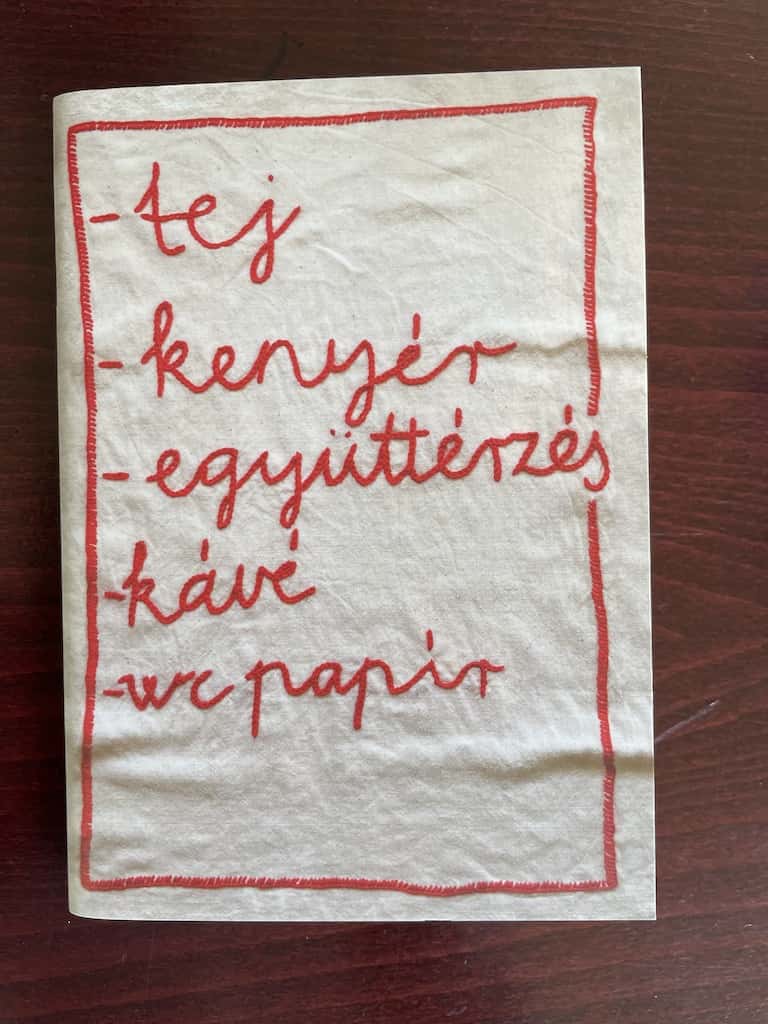 -tej
-kenyér
-együttérzés
-kávé
-wc papír